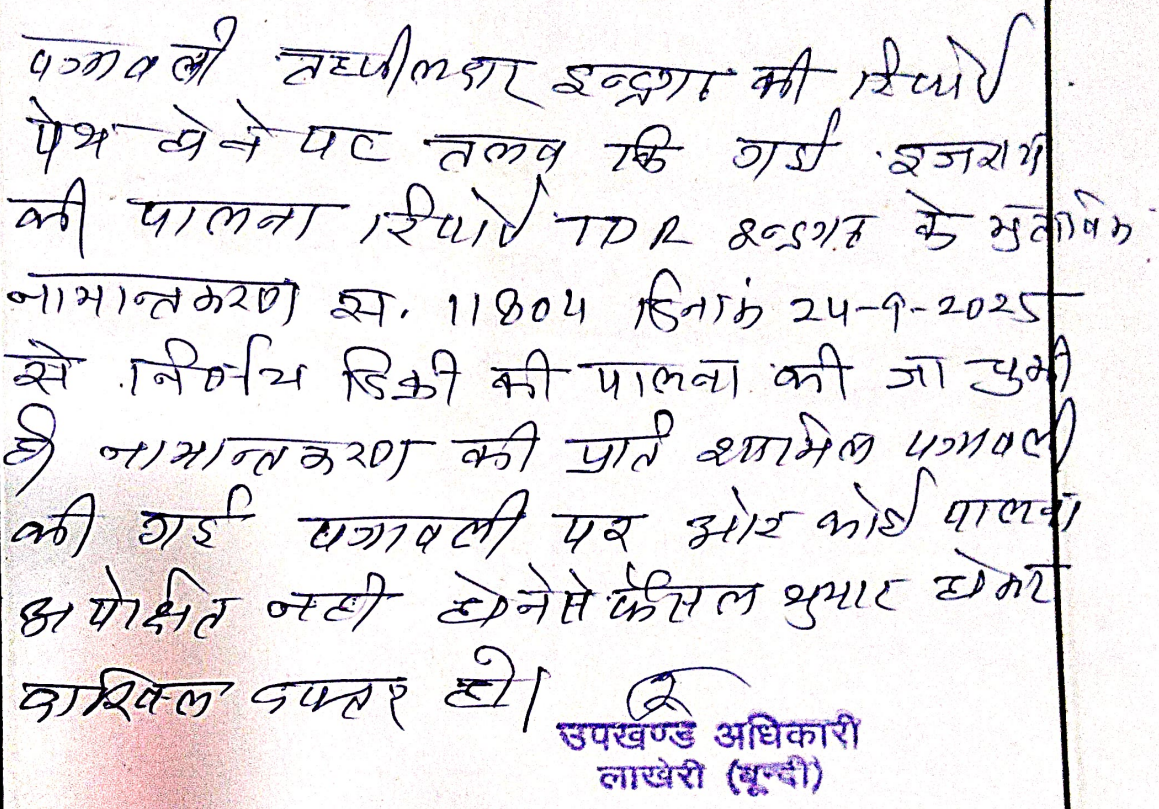 पत्रावली तहसीलदार इन्द्रगढ की रिपोर्ट
पेश होने पर तलब कि गई इजराय
की पालना रिपोर्ट TDR इन्द्रगढ के मुताबिक
नामान्तकरण स. 11804 दिनांक 24-9-2025
से निर्णय डिक्री की पालना की जा चुकी
है नामान्तकरण की प्रति शामिल पत्रावली
की गई पत्रावली पर ओर कोई पालना
अपेक्षित नही होने से फैसल शुमार होकर
दाखिल दफ्तर हो।
उपखण्ड अधिकारी
लाखेरी (बून्दी)